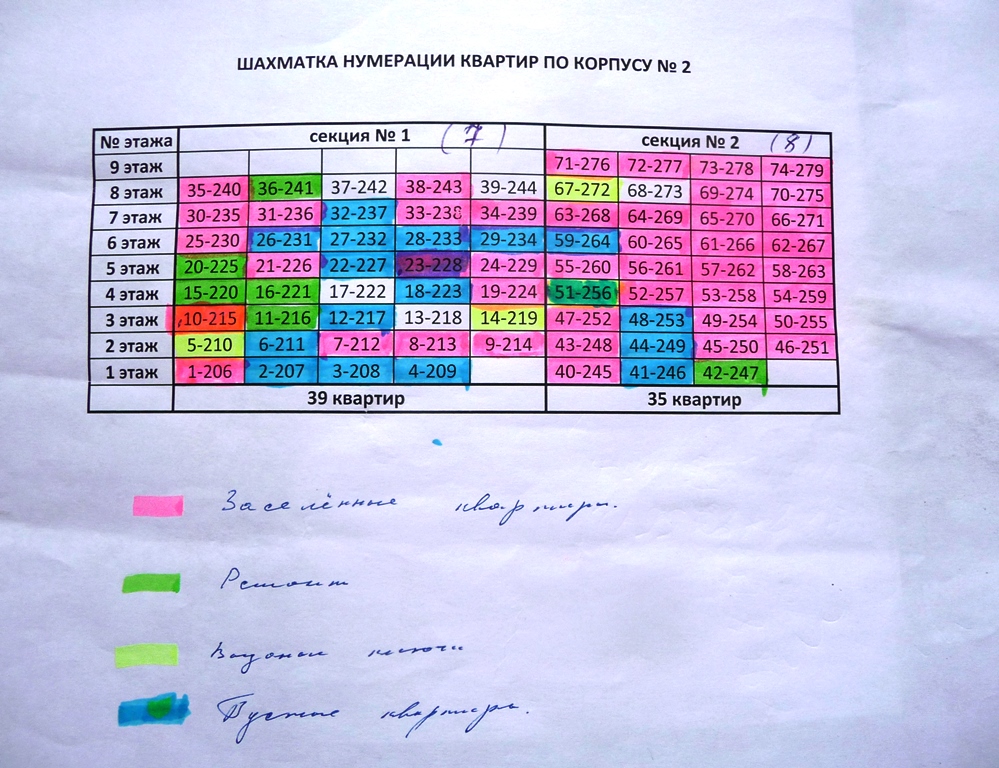 ШАХМАТКА НУМЕРАЦИИ КВАРТИР ПО КОРПУСУ № 2
№ этажа секция № 1 (7) секция № 2 (8)
9 этаж 71-276 72-277 73-278 74-279
8 этаж 35-240 36-241 37-242 38-243 39-244 67-272 68-273 69-274 70-275
7 этаж 30-235 31-236 32-237 33-238 34-239 63-268 64-269 65-270 66-271
6 этаж 25-230 26-231 27-232 28-233 29-234 59-264 60-265 61-266 62-267
5 этаж 20-225 21-226 22-227 23-228 24-229 55-260 56-261 57-262 58-263
4 этаж 15-220 16-221 17-222 18-223 19-224 51-256 52-257 53-258 54-259
3 этаж 10-215 11-216 12-217 13-218 14-219 47-252 48-253 49-254 50-255
2 этаж 5-210 6-211 7-212 8-213 9-214 43-248 44-249 45-250 46-251
1 этаж 1-206 2-207 3-208 4-209 40-245 41-246 42-247
39 квартир 35 квартир
Заселённые квартиры.
Ремонт
ключи
Пустые квартиры.